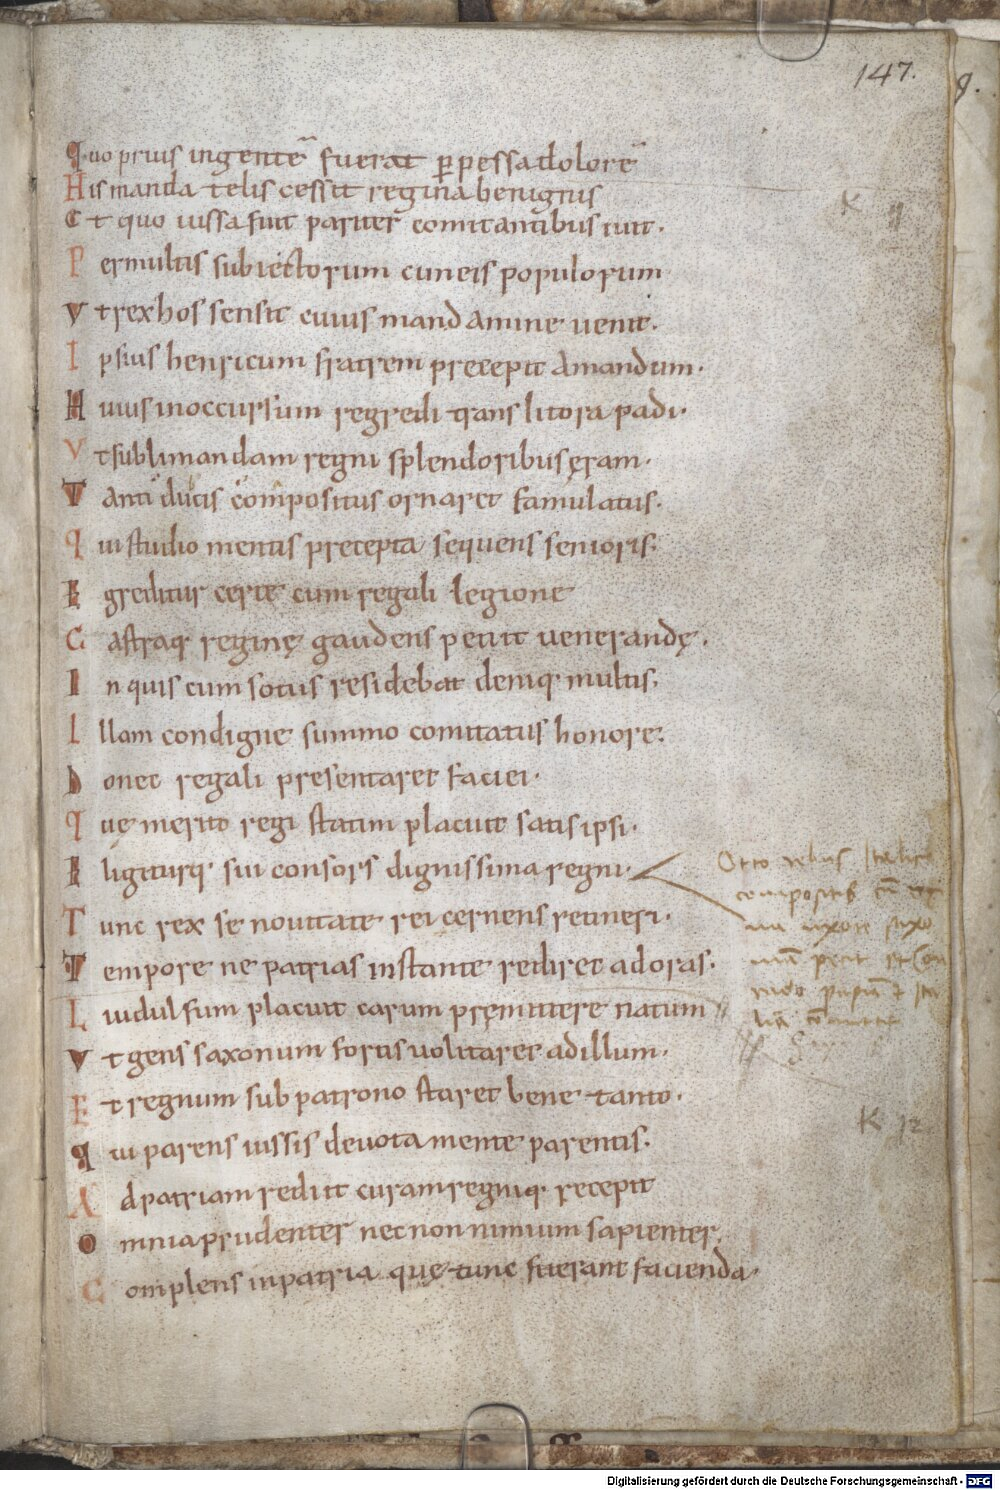 147.
Quo prius ingentē fuerat ꝑpessa dolorē
His mandatelis cessit regina benignus
Et quo iussa fuit pariter comitantibus iuit.
Permultis subiectorum cuneis populorum
Vt rex hos sensit cuius mandamine uenit.
Ipsius henricum fratrem precepit amandum.
Huius in occursum regredi trans litora padi.
Vt sublimandam regni splendoribus ęram.
Tanti ducis compositus ornaret famulatus.
Qui studio mentis precepta sequens senioris.
Egreditur certe cum regali legione
Castraq; reginę gaudens petiit uenerandę.
In quis cum sotiis residebat deniq; multis.
Illam condigne summo comitatus honore.
Donec regali presentaret faciei.
Quę merito regi statim placuit satis ipsi.
Eligiturq; sui consors dignissima regni.
Tunc rex se nouitate rei cernens retineri.
Tempore ne patrias instante rediret ad oras.
Liudulfum placuit carum pręmittere natum
Vt gens saxonum fortis uolitaret ad illum.
Et regnum sub patrono staret bene tanto.
Qui parens iussis deuota mente parentis.
Ad patriam rediit curam regniq; recepit
Omnia prudenter nec non nimium sapienter.
Complens in patria quę tunc fuerant facienda.
K 11
Otto rebus Italicis
compositis cū
uxore
petit
K 12
Digitalisierung gefördert durch die Deutsche Forschungsgemeinschaft - DFG